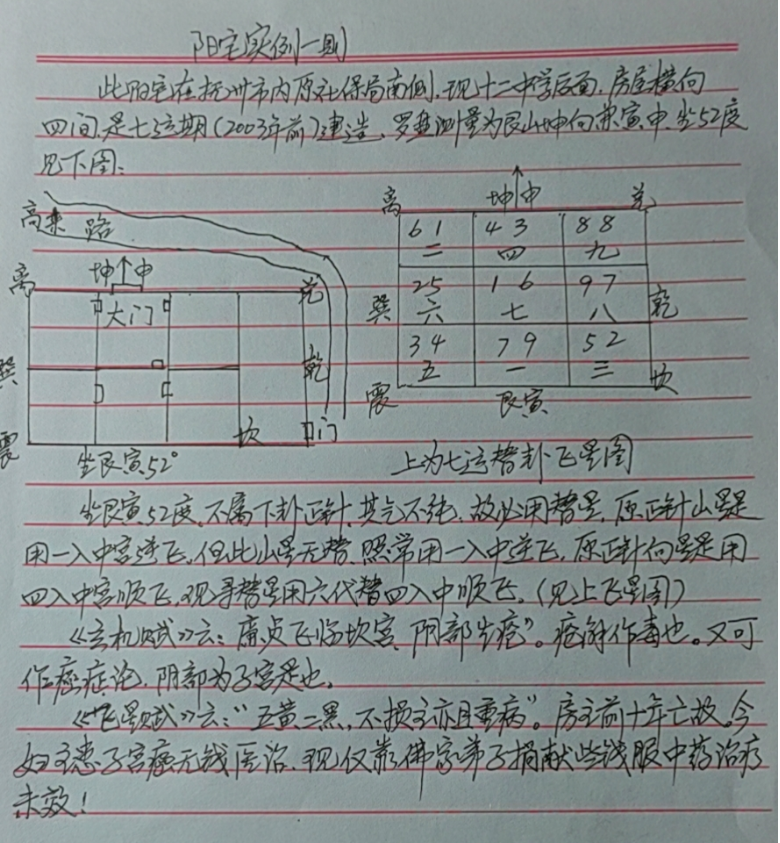 阳宅实例一则
此阳宅在抚州市内原社保局南侧.现十二中学后面.房屋横向
四间.是七运期(2003年前)建造,罗盘测量为艮山坤向兼寅申.坐52度
见下图:
高 路
坤 申
离 大门 兑
巽 乾
震 坎 门
坐艮寅52°
坤申
离 兑
61 43 88
二 四 九
25 16 97
巽 六 七 八 乾
34 79 52
五 一 三
震 艮寅 坎
上为七运替卦飞星图
坐艮寅52度.不属下卦正针.其气不纯.故必用替星.原正针山星是
用一入中宫逆飞.但此山星无替.照常用一入中逆飞.原正针向星是用
四入中宫顺飞.现寻替星用六代替四入中顺飞.(见上飞星图)
《玄机赋》云:廉贞飞临坎宫.阴部生疮”。疮解作毒也。又可
作癌症论.阴部为子宫是也.
《飞星赋》云:“五黄二黑,不损主亦且重病”。房主前十年亡故.今
妇主患子宫癌无钱医治.现仅靠佛家弟子捐献些钱服中药治疗
未效!